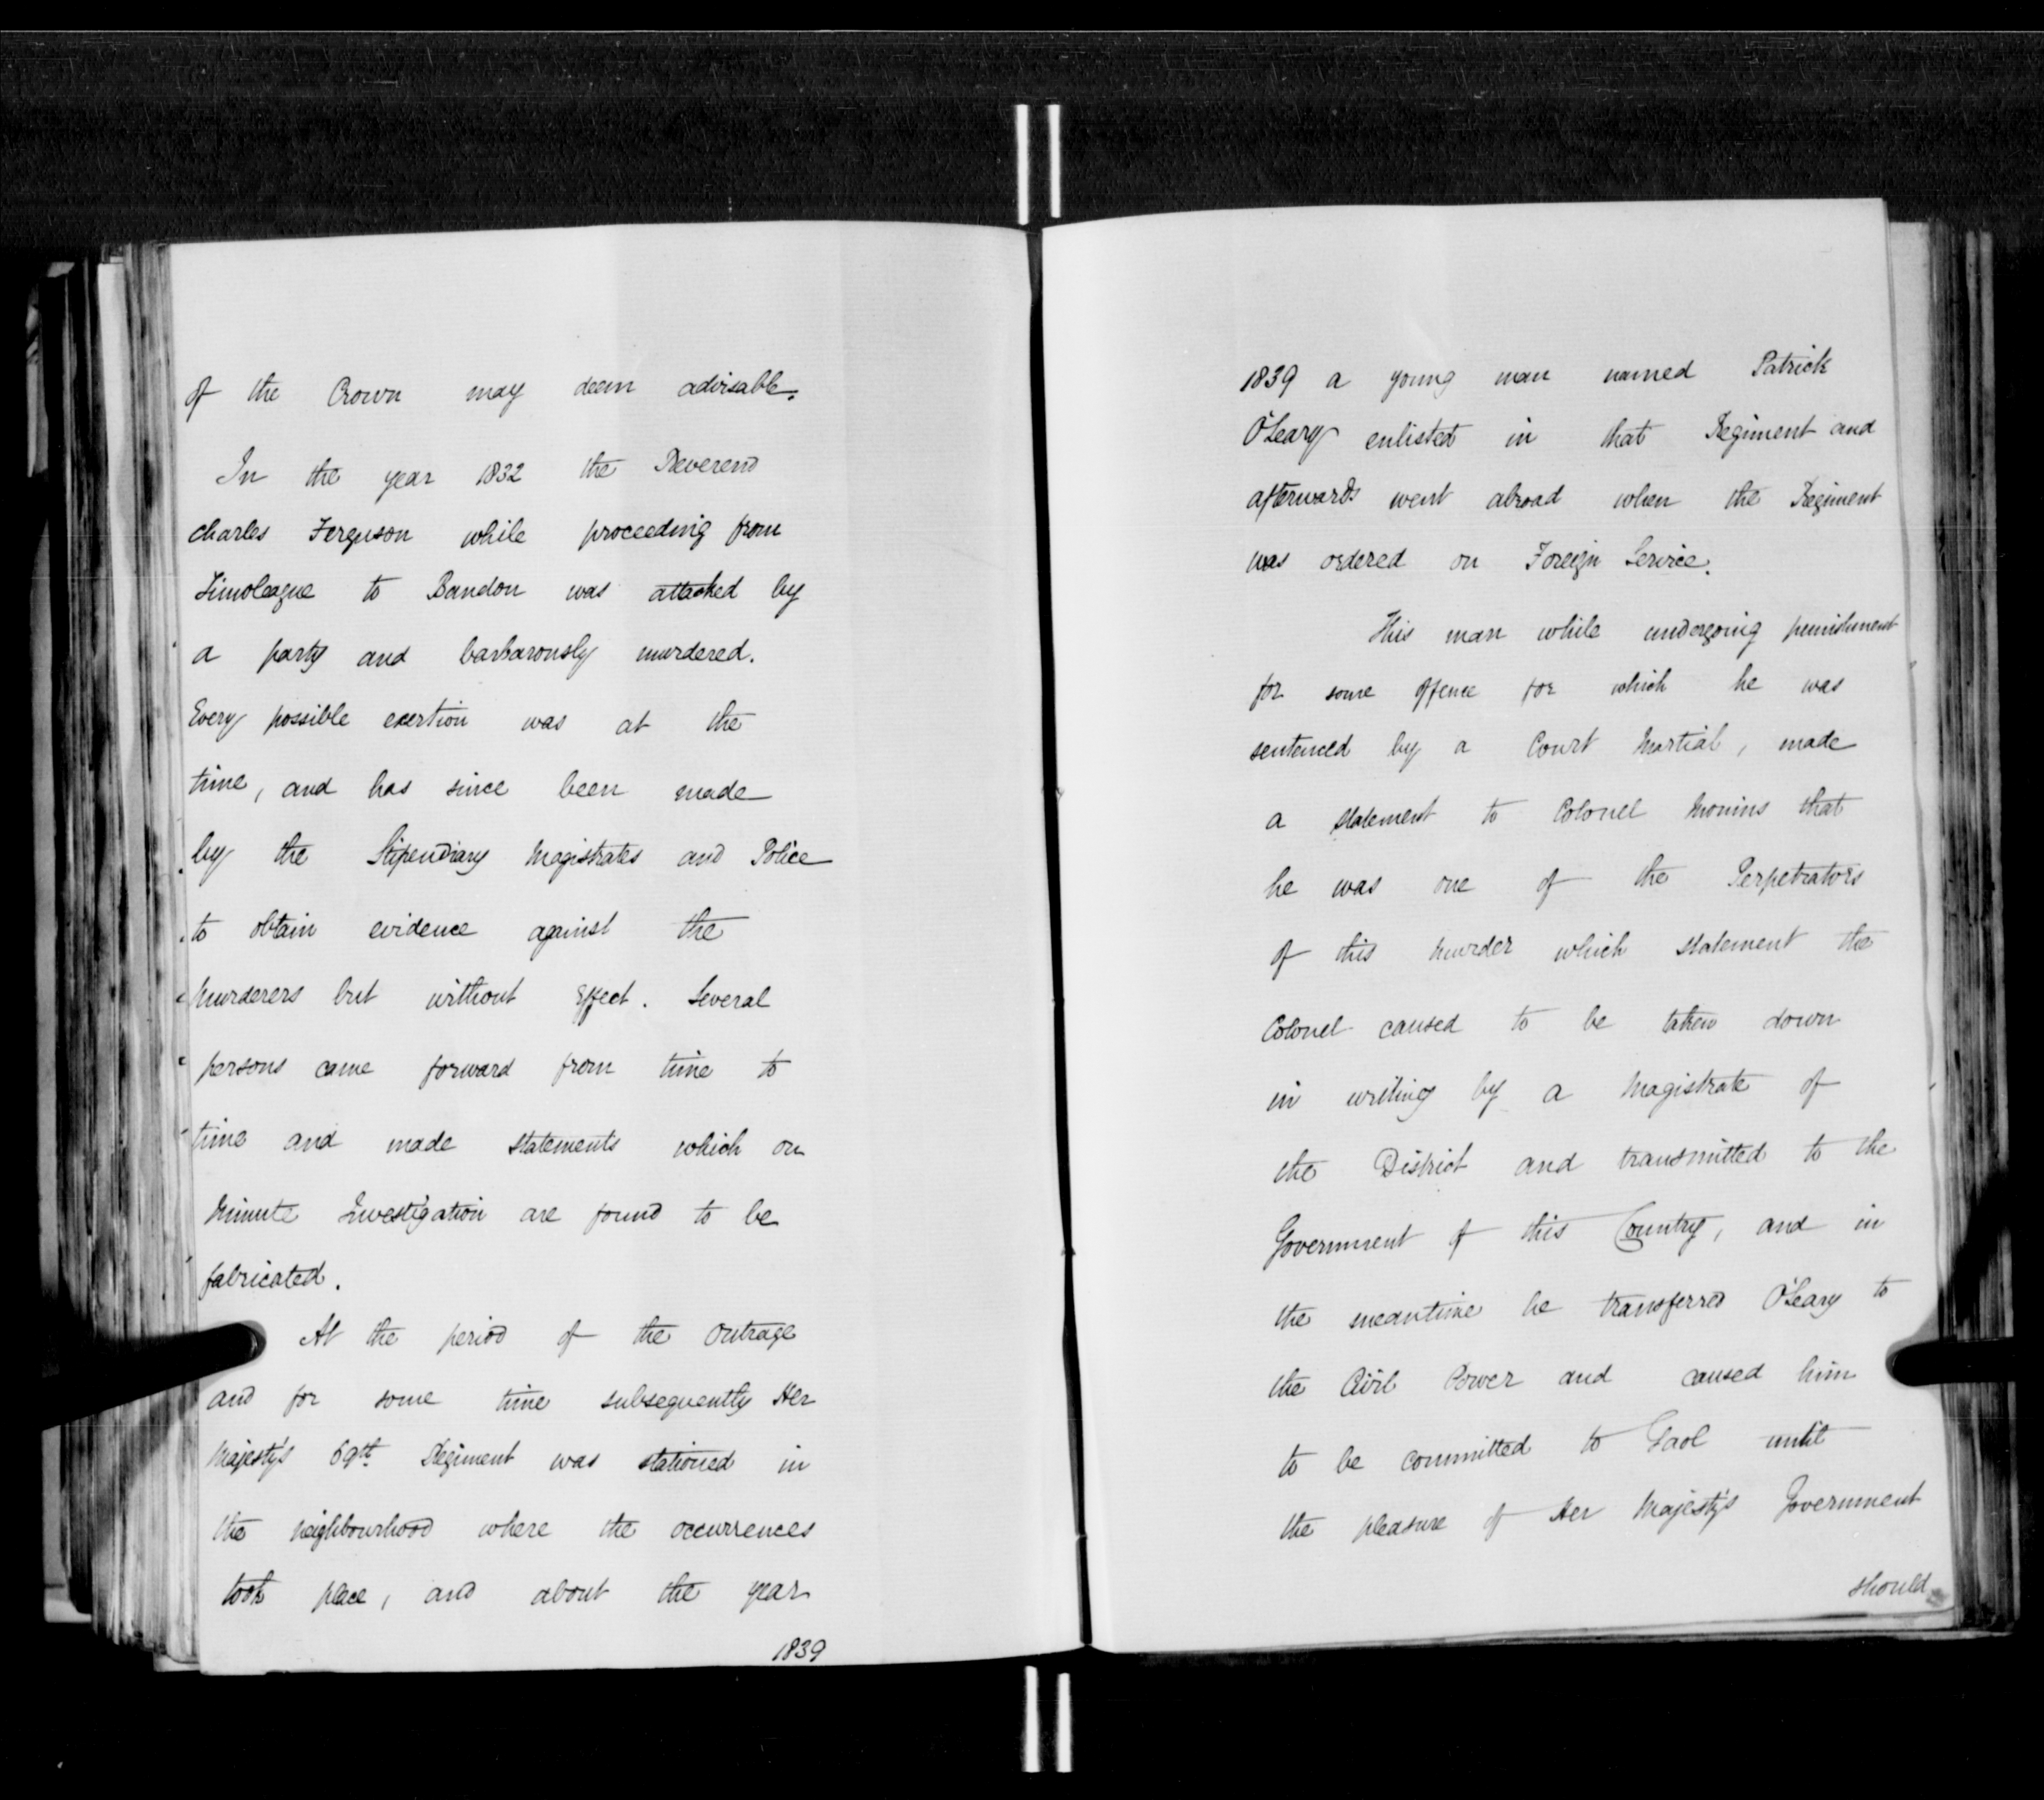 of the Crown may deem advisable.
In the year 1832 the Reverend
Charles Ferguson while proceeding from
Timoleague to Bandon was attacked by
a party and barbarously murdered.
Every possible exertion was at the
time, and has since been made
by the Stipendiary Magistrates and Police
to obtain evidence against the
Murderers but without Effect. Several
persons came forward from time to
time and made statements which on
Minute Investigation are found to be
fabricated.
At the period of the Outrage
and for some time subsequently Her
Majesty's 69th Regiment was stationed in
the neighbourhood where the occurrences
took place, and about the year
1839
1839 a young man named Patrick
O'Leary enlisted in that Regiment and
afterwards went abroad when the Regiment
was ordered on Foreign Service.
This man while undergoing punishment
for some offence for which he was
sentenced by a Court Martial, made
a statement to Colonel Monins that
he was one of the Perpetrators
of this Murder which statement the
Colonel caused to be taken down
in writing by a Magistrate of
the District and transmitted to the
Government of this Country, and in
the meantime he transferred O'Leary to
the Civil Power and caused him
to be committed to Gaol until
the pleasure of Her Majesty's Government
should